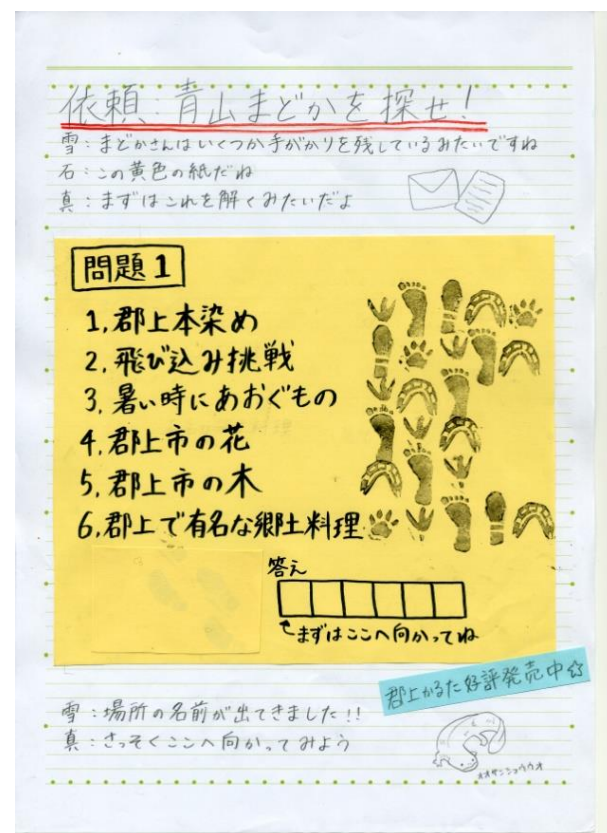 依頼:青山まどかを探せ!
雪:まどかさんはいくつか手がかりを残しているみたいですね
石:この黄色の紙だね
真:まずはこれを解くみたいだよ
問題1
1,郡上本染め
2,飛び込み挑戦
3,暑い時にあおぐもの
4,郡上市の花
5,郡上市の木
6,郡上で有名な郷土料理
答え
まずはここへ向かってね
郡上かるた好評発売中☆
雪:場所の名前が出てきました!!
真:さっそくここへ向かってみよう
オオサンショウウオ